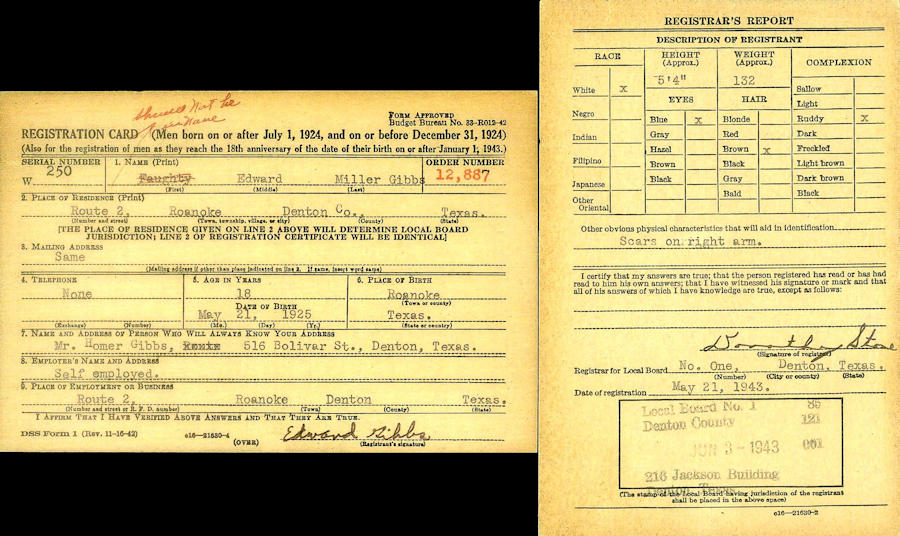 should Not be
REGISTRATION CARD (Men born on or after July 1, 1924, and on or before December 31, 1924)
FORM APPROVED
Budget Bureau No. 33-R012-42
(Also for the registration of men as they reach the 18th anniversary of the date of their birth on or after January 1, 1943.)
SERIAL NUMBER 1. NAME (Print) ORDER NUMBER
W 250 Faughty Edward Miller Gibbs 12,887
(First) (Middle) (Last)
2. PLACE OF RESIDENCE (Print)
Route 2, Roanoke Denton Co., Texas.
(Number and street) (Town, township, village, or city) (County) (State)
[THE PLACE OF RESIDENCE GIVEN ON LINE 2 ABOVE WILL DETERMINE LOCAL BOARD
JURISDICTION; LINE 2 OF REGISTRATION CERTIFICATE WILL BE IDENTICAL]
3. MAILING ADDRESS
Same
(Mailing address if other than place indicated on line 2. If same, insert word same)
4. TELEPHONE 5. AGE IN YEARS 6. PLACE OF BIRTH
None 18 Roanoke
DATE OF BIRTH (Town or county)
May 21, 1925 Texas.
(Exchange) (Number) (Mo.) (Day) (Yr.) (State or country)
7. NAME AND ADDRESS OF PERSON WHO WILL ALWAYS KNOW YOUR ADDRESS
Mr. Homer Gibbs, 516 Bolivar St., Denton, Texas.
8. EMPLOYER'S NAME AND ADDRESS
Self employed.
9. PLACE OF EMPLOYMENT OR BUSINESS
Route 2, Roanoke Denton Texas.
(Number and street or R. F. D. number) (Town) (County) (State)
I AFFIRM THAT I HAVE VERIFIED ABOVE ANSWERS AND THAT THEY ARE TRUE.
DSS Form 1 (Rev. 11-16-42) c16-21630-4 (OVER) Edward Gibbs
(Registrant's signature)
REGISTRAR'S REPORT
DESCRIPTION OF REGISTRANT
RACE HEIGHT (Approx.) WEIGHT (Approx.) COMPLEXION
5'4" 132
White x Sallow
EYES HAIR Light
Negro Blue x Blonde Ruddy x
Gray Red Dark
Indian Hazel Brown x Freckled
Filipino Brown Black Light brown
Japanese Black Gray Dark brown
Other Oriental Bald Black
Other obvious physical characteristics that will aid in identification
Scars on right arm.
I certify that my answers are true; that the person registered has read or has had
read to him his own answers; that I have witnessed his signature or mark and that
all of his answers of which I have knowledge are true, except as follows:
Dorothy Stone
(Signature of registrar)
Registrar for Local Board No. One, Denton, Texas.
(Number) (City or county) (State)
Date of registration May 21, 1943.
Local Board No. 1 85
Denton County 121
JUN 3 - 1943 001
216 Jackson Building
Denton, Texas
(The stamp of the Local Board having jurisdiction of the registrant
shall be placed in the above space)
c16-21630-2